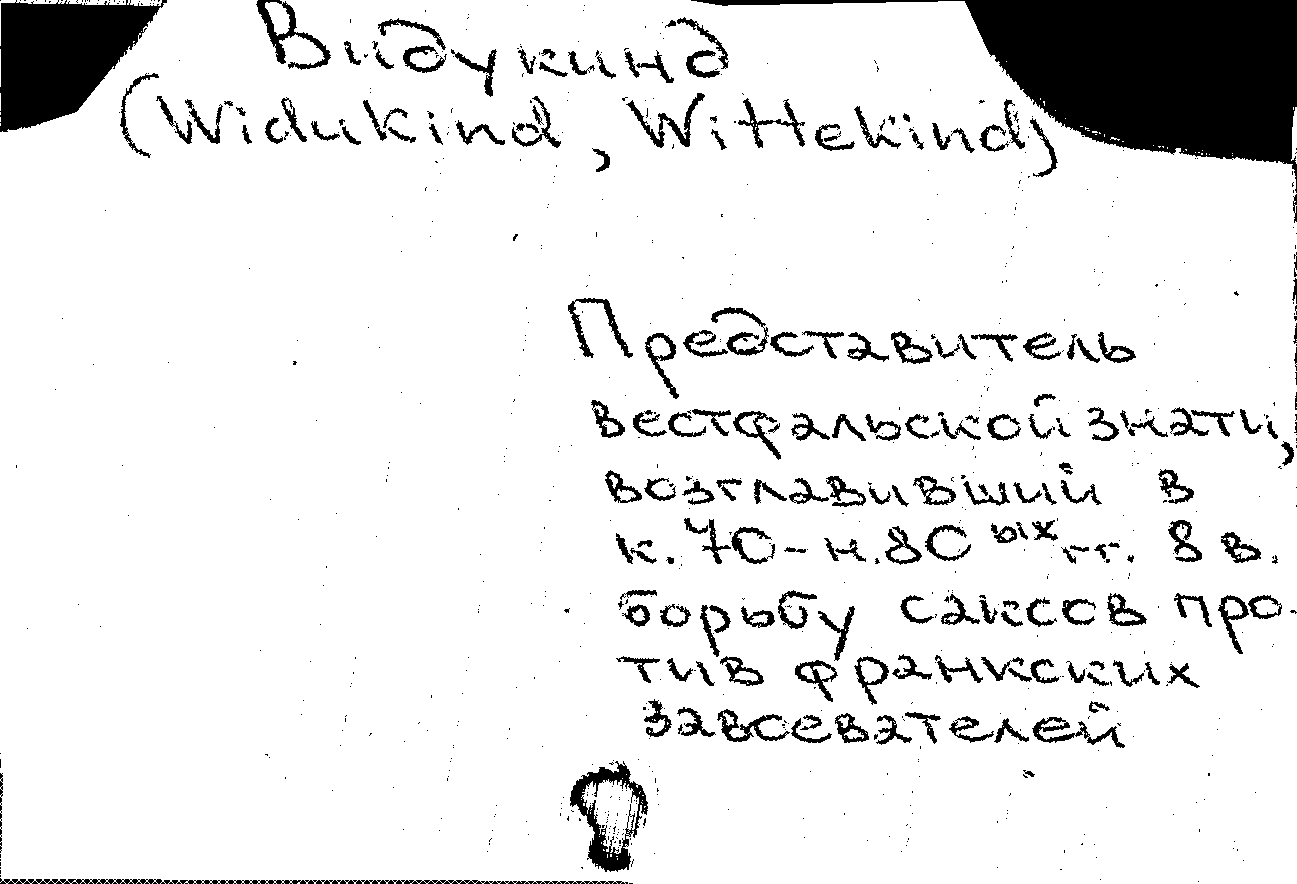 Видукинд
(Widukind, Wittekind)
Представитель
вестфальской знати,
возглавивший в
к. 70-н. 80ых гг. 8 в.
борьбу саксов про-
тив франкских
завоевателей